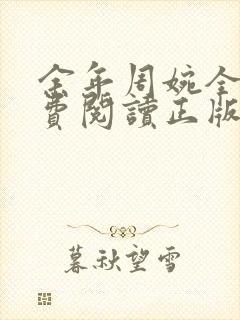 金年周婉全
費閱讀正版
暮秋望雪